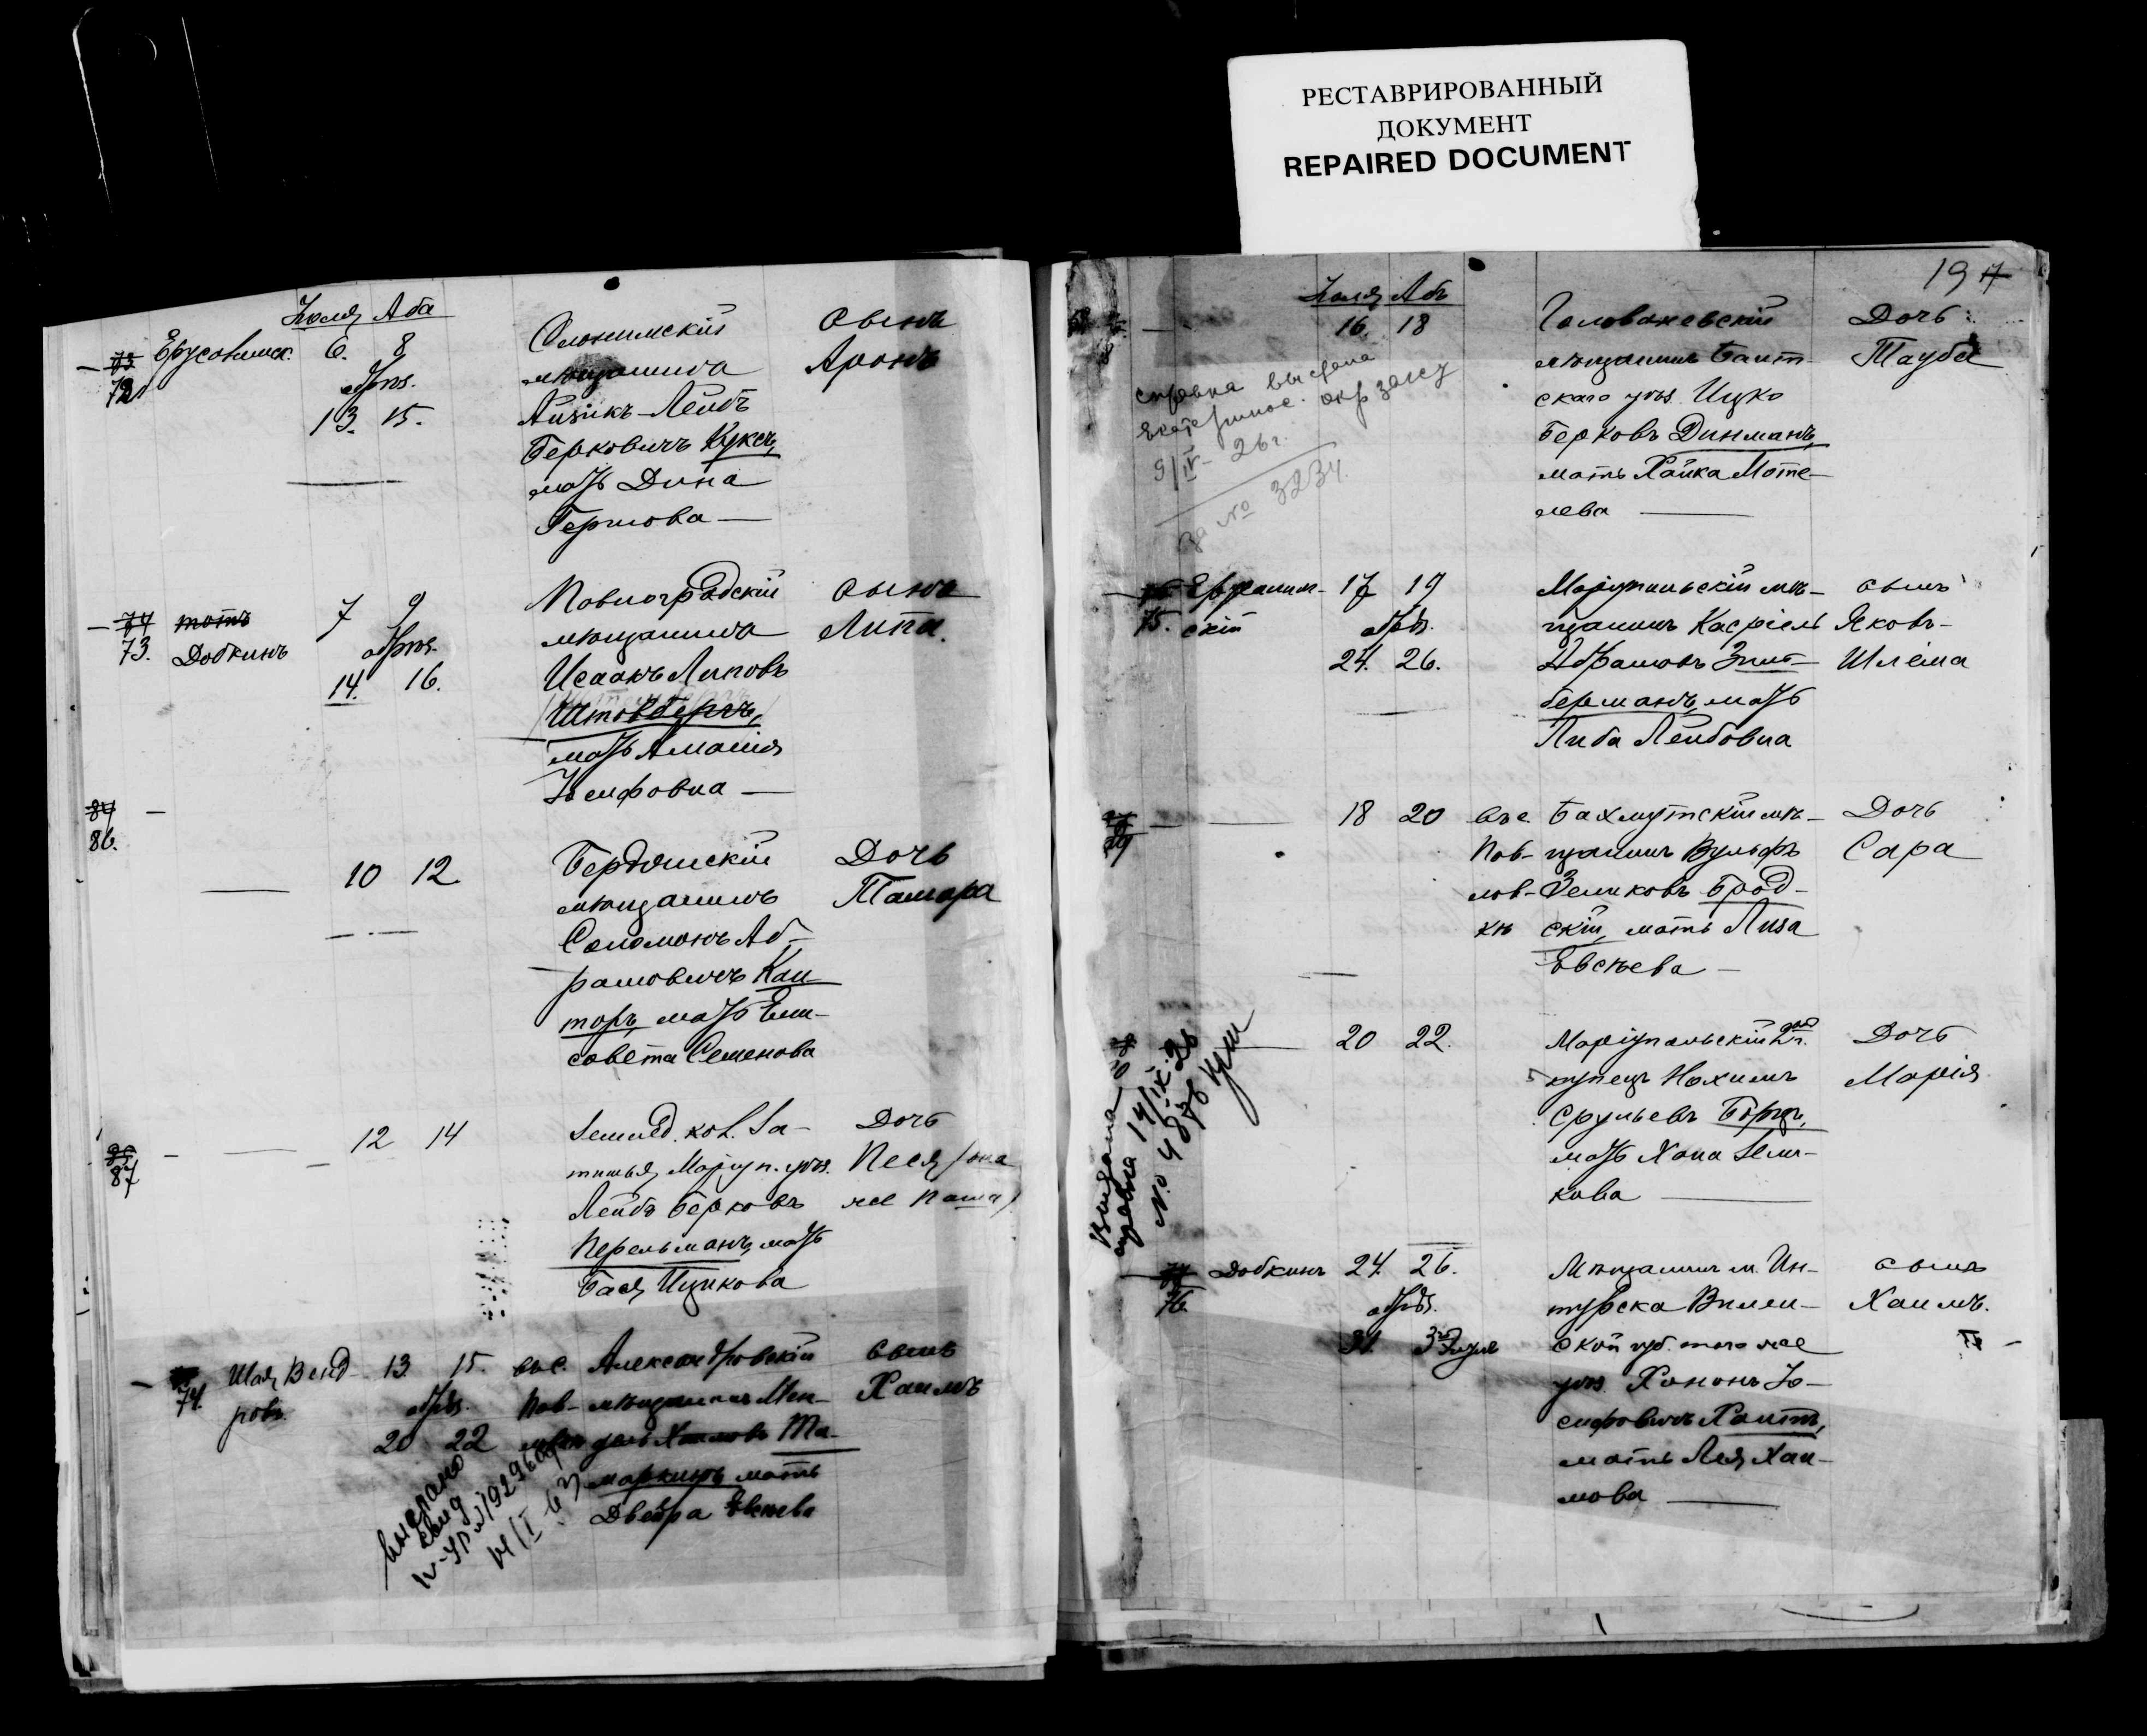 РЕСТАВРИРОВАННЫЙ
ДОКУМЕНТ
REPAIRED DOCUMENT
Іюля Аба
72 Ерусалимск. 6. 8
обрѣз.
13. 15.
Слонимскій
мѣщанинъ
Айзикъ-Лейбъ
Берковичъ Куксъ,
мать Дина
Гершова —
Сынъ
Аронъ
74 тотъ
73. Добкинъ
7 9
обрѣз.
14. 16.
Павлоградскій
мѣщанинъ
Исаакъ Липовъ
Штокбергъ,
мать Амалія
Іосифовна —
Сынъ
Липа.
84 —
86.
10 12.
Бердянскій
мѣщанинъ
Соломонъ Аб-
рамовичъ Кан-
торъ, мать Ели-
савета Семенова
Дочь
Тамара
87
12 14
Землед. кол. За-
тишья, Маріуп. уѣз.
Лейбъ Берковъ
Перельманъ, мать
Бася Ицикова
Дочь
Песя /она
же Паша/
74. Шая Венд-
ровъ.
13. 15.
обрѣз.
20 22
въ с.
Пав-
Александровскій
мѣщанинъ Мен-
дель Хаимовъ Та-
маркинъ, мать
Двейра Евсѣева
Сынъ
Хаимъ
Выслано
197
Іюля Аб.
16. 18
Головоневскій
мѣщанинъ Балт-
скаго уѣз. Ицко
Берковъ Динманъ,
мать Хайка Моте-
лева —
Дочь
Тауба
справка выслана
Екатеринос. окр загсу
9/IV- 26 г.
за № 3234.
75. Ефраим-
скій
17 19
обрѣз.
24. 26.
Маріупольскій мѣ-
щанинъ Касріель
Абрамовъ Зиль-
берманъ, мать
Либа Лейбовна
сынъ
Яковъ-
Шлема
18 20
въ с.
Пав-
лов-
кѣ
Бахмутскій мѣ-
щанинъ Вульфъ
Зеликовъ Брод-
скій, мать Лиза
Евсѣева —
Дочь
Сара
20 22.
Маріупольскій 2й г.
купецъ Нохимъ
Срульевъ Борцъ,
мать Хана Зели-
кова —
Дочь
Марія
Выдана
справка 14/IX-26
76. Добкинъ
24. 26.
обрѣз.
31. 3го Элула
Мѣщанинъ м. Ин-
турска Вилен-
ской губ. того же
уѣз. Хононъ Іо-
сифовичъ Хаитъ,
мать Лея Хаи-
мова —
сынъ
Хаимъ.